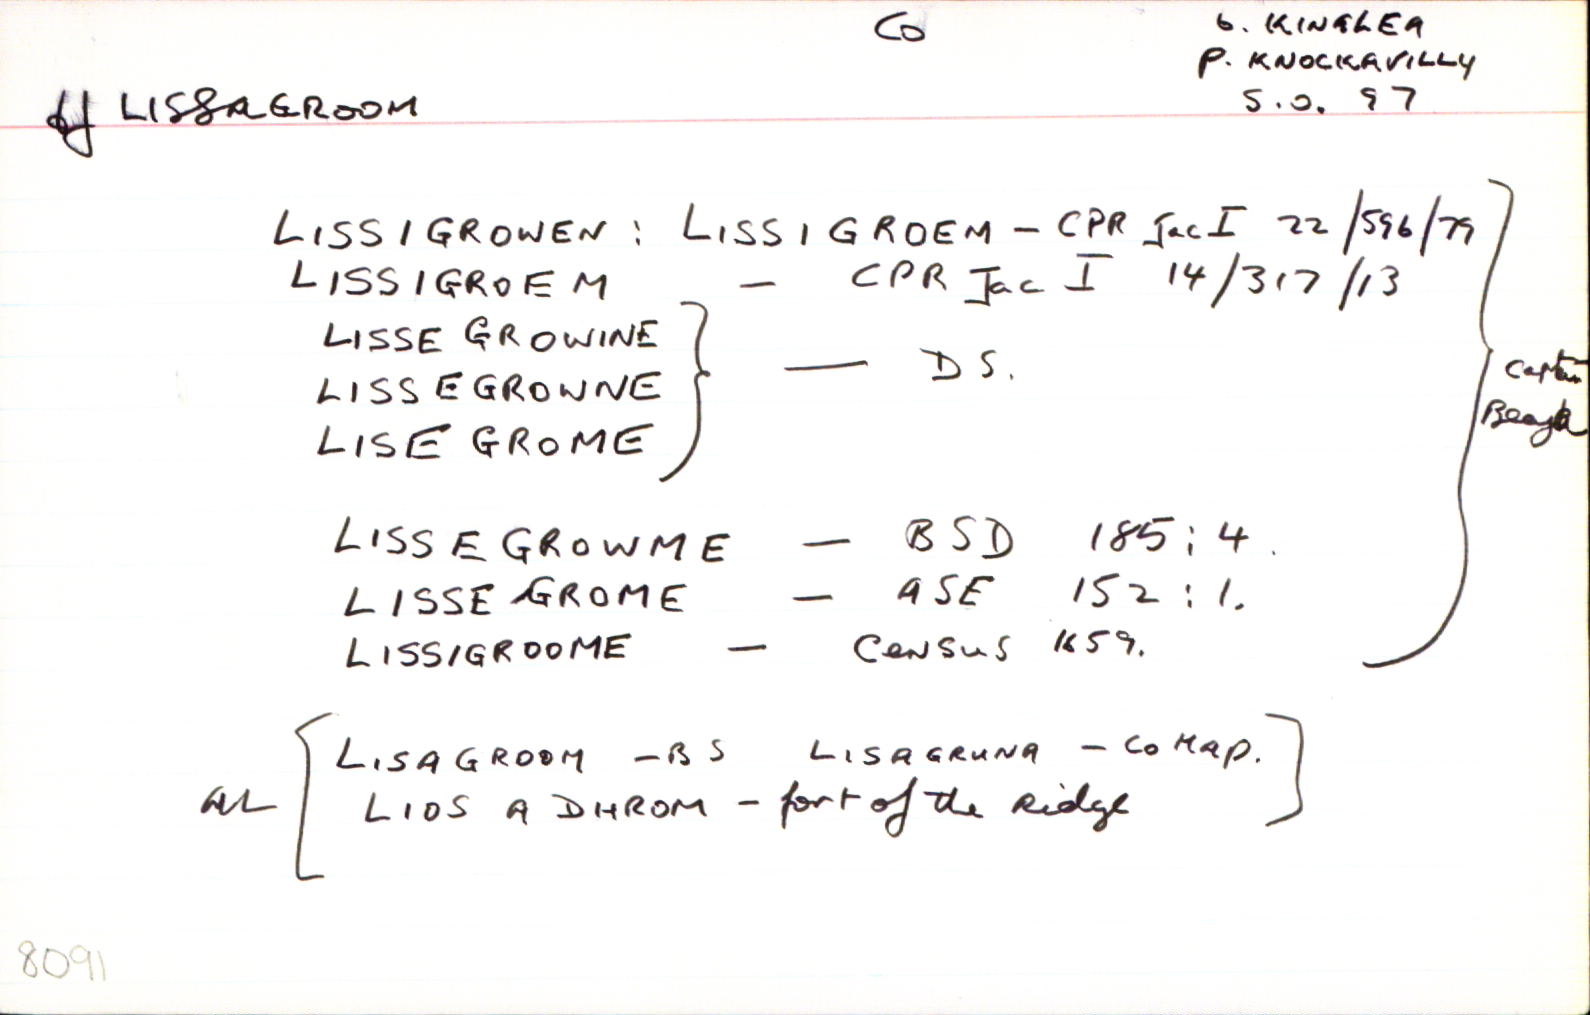 Co
b. KINALEA
P. KNOCKAVILLY
S.O. 97
LISSAGROOM
LISSIGROWEN : LISSIGROEM - CPR Jac I 22/596/79
LISSIGROEM - CPR Jac I 14/317/13
LISSE GROWINE
LISSEGROWNE
LISE GROME
— DS.
Captain
LISSEGROWME — BSD 185 : 4.
LISSE GROME — ASE 152 : 1.
LISSIGROOME — Census 1659.
LISAGROOM - BS LISAGRUNA - Co Map.
LIOS A DHROM - fort of the Ridge
8091